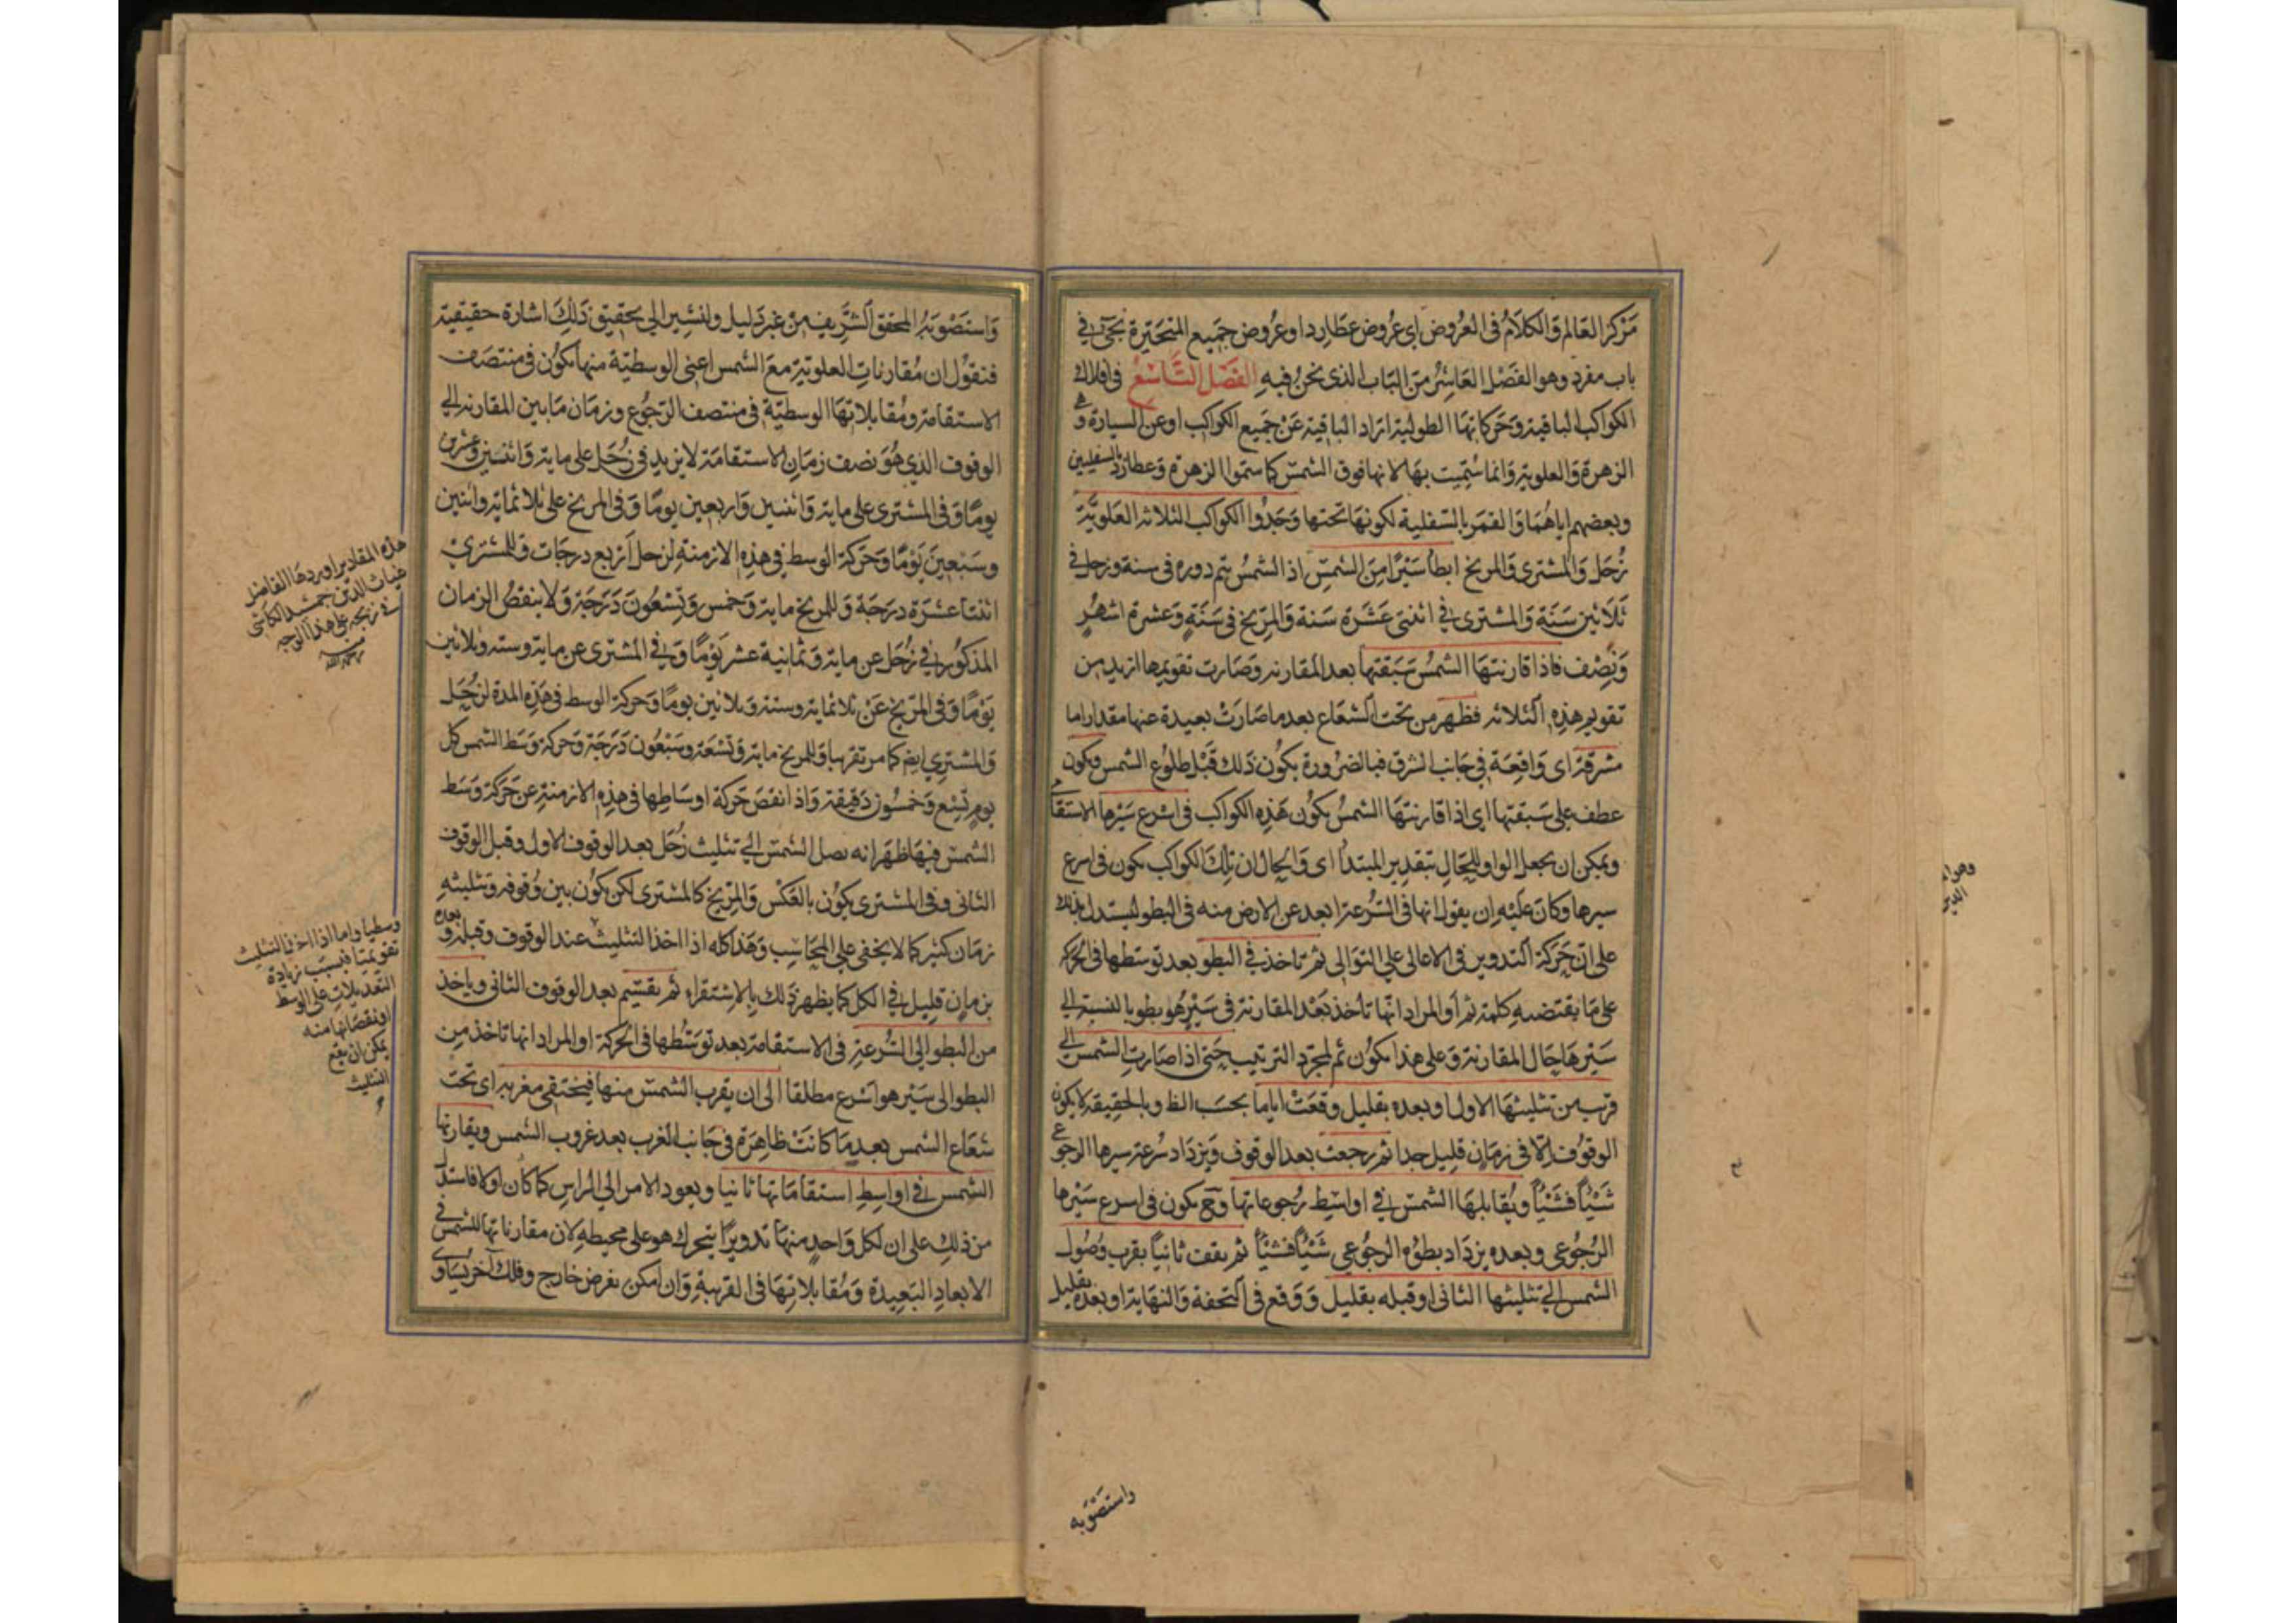 مركز العالم والكلام في العروض اي عروض عطارد او عروض جميع المتحيرة يجئ في
باب مفرد وهو الفصل العاشر من الباب الذي نحن فيه الفصل التاسع في افلاك
الكواكب الباقية وحركاتها الطولية اراد الباقية عن جميع الكواكب او عن السيارة
الزهرة والعلوية وانما سميت بها لانها فوق الشمس كما سموا الزهرة وعطارد بالسفليين
وبعضهم اياهما والقمر بالسفلية لكونها تحتها وجدوا الكواكب الثلاثة العلوية
زحل والمشتري والمريخ ابطا سيرا من الشمس اذ الشمس يتم دوره في سنة وزحل في
ثلاثين سنة والمشتري في اثنتي عشرة سنة والمريخ في سنة وعشرة اشهر
ونصف فاذا قارنتها الشمس سبقتها بعد المقارنة وصارت تقويمها ازيد من
تقويم هذه الثلاثة فظهر من تحت الشعاع بعد ما صارت بعيدة عنها مقدارا ما
مشرقة اي واقعة في جانب الشرق فبالضرورة يكون ذلك قبل طلوع الشمس ويكون
عطف على سبقتها اي اذا قارنتها الشمس يكون هذه الكواكب في اسرع سيرها الاستقا
ويمكن ان يجعل الواو للحال بتقدير المبتدأ اي والحال ان تلك الكواكب يكون في اسرع
سيرها وكان عليه ان يقول انها في السرعة ابعد عن الارض منه في البطو ليستدل بذلك
على ان حركة التدوير في الاعالي على التوالي ثم تاخذ في البطو بعد توسطها في الحركة
على ما يقتضيه كلمة ثم او المراد انها تأخذ بعد المقارنة في سير هو بطو بالنسبة الى
سيرها حال المقارنة وعلى هذا يكون ثم لمجرد الترتيب حتى اذا صارت الشمس الى
قرب من تثليثها الاول او بعده بقليل وقعت اياما بحسب الظ وبالحقيقة لا يكون
الوقوف الا في زمان قليل جدا ثم رجعت بعد الوقوف ويزداد سرعة سيرها الرجوعي
شيئا فشيئا ويقابلها الشمس في اواسط رجوعاتها وح يكون في اسرع سيرها
الرجوعي وبعده يزداد بطؤه الرجوعي شيئا فشيئا ثم يقف ثانيا بقرب وصول
الشمس الى تثليثها الثاني او قبله بقليل ووقع في التحفة والنهاية او بعده بقليل
واستصوبه
واستصوبه المحقق الشريف من غير دليل ولنشير الى تحقيق ذلك اشارة حقيقية
فنقول ان مقارنات العلوية مع الشمس اعني الوسطية منها يكون في منتصف
الاستقامة ومقابلاتها الوسطية في منتصف الرجوع وزمان ما بين المقارنة الى
الوقوف الذي هو نصف زمان الاستقامة لا يزيد في زحل على ماية واثنين وعشرين
يوما وفي المشتري على ماية واثنين واربعين يوما وفي المريخ على ثلاثماية واثنين
وسبعين يوما وحركة الوسط في هذه الازمنة لزحل اربع درجات وللمشتري
اثنتا عشرة درجة وللمريخ ماية وخمس وتسعون درجة ولا ينقص الزمان
المذكور في زحل عن ماية وثمانية عشر يوما وفي المشتري عن ماية وستة وثلاثين
يوما وفي المريخ عن ثلاثماية وستة وثلاثين يوما وحركة الوسط في هذه المدة لزحل
والمشتري ايض كما مر تقريبا وللمريخ ماية وتسعة وسبعون درجة وحركة وسط الشمس كل
يوم تسع وخمسون دقيقة واذا نقص حركة اوساطها في هذه الازمنة عن حركة وسط
الشمس فيها ظهر انه يصل الشمس الى تثليث زحل بعد الوقوف الاول وقبل الوقوف
الثاني وفي المشتري يكون بالعكس والمريخ كالمشتري لكن يكون بين وقوفه وتثليثه
زمان كثير كما لا يخفى على المحاسب وهذا كله اذا اخذ التثليث عند الوقوف وقبله وبعده
بزمان قليل في الكل كما يظهر ذلك بالاستقراء ثم يقسيم بعد الوقوف الثاني وياخذ
من البطو الى السرعة في الاستقامة بعد توسطها في الحركة او المراد انها تاخذ من
البطو الى سير هو اسرع مطلقا الى ان يقرب الشمس منها فيختفي مغربه اي تحت
شعاع الشمس بعد ما كانت ظاهرة في جانب الغرب بعد غروب الشمس ويقارنها
الشمس في اواسط استقاماتها ثانيا ويعود الامر الى الراس كما كان اولا فاستدل
من ذلك على ان لكل واحد منها تدويرا يتحرك هو على محيطه لان مقارناتها للشمس في
الابعاد البعيدة ومقابلاتها في القريبة وان امكن بفرض خارج وفلك آخر يساوي
هذه المقادير اوردها الفاضل
غياث الدين جمشيد الكاشي
في زيجه على هذا الوجه
منه رحمه الله
وسطيا واما اذا اخذ التثليث
تقويميا فبسبب زيادة
التعديلات على الوسط
او نقصانها منه
يمكن ان يقع
التثليث